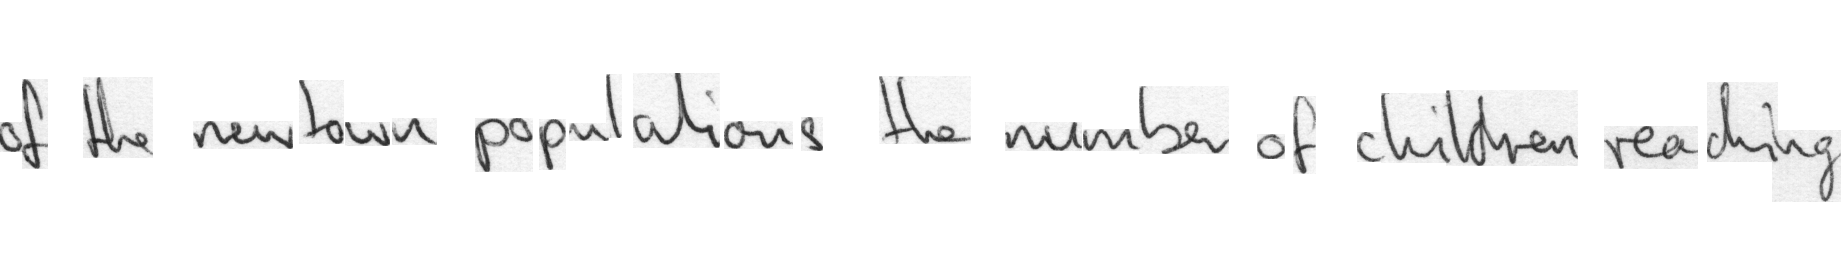 of the newtown populations the number of children reaching